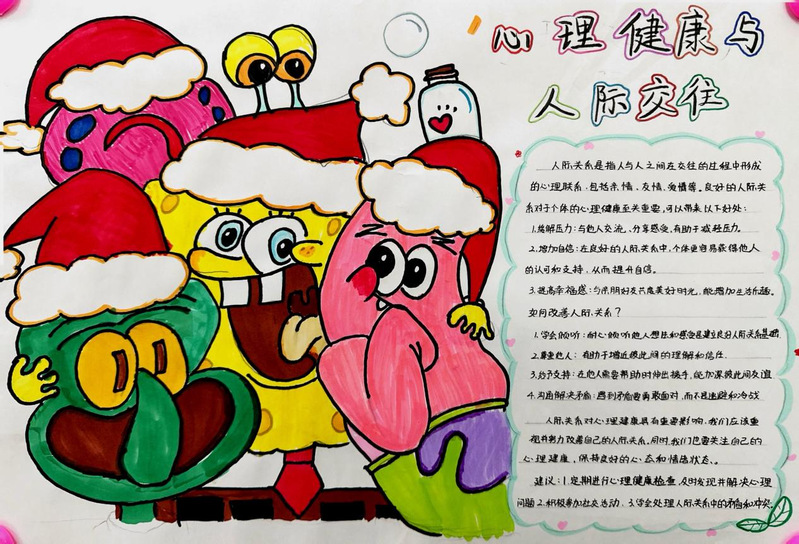 心理健康与
人际交往
人际关系是指人与人之间在交往的过程中形成
的心理联系,包括亲情、友情、爱情等。良好的人际关
系对于个体的心理健康至关重要,可以带来以下好处:
1.缓解压力:与他人交流、分享感受,有助于减轻压力。
2.增加自信:在良好的人际关系中,个体更容易获得他人
的认可和支持,从而提升自信。
3.提高幸福感:与亲朋好友共度美好时光,能增加生活乐趣。
如何改善人际关系?
1.学会倾听:耐心倾听他人想法和感受是建立良好人际关系基础
2.尊重他人:有助于增近彼此间的理解和信任。
3.给予支持:在他人需要帮助时伸出援手,能加深彼此间友谊
4.沟通解决矛盾:遇到矛盾需勇敢面对,而不是逃避和冷战
人际关系对心理健康具有重要影响,我们应该重
视并努力改善自己的人际关系。同时,我们也需关注自己的
心理健康,保持良好的心态和情绪状态。
建议:1.定期进行心理健康检查,及时发现并解决心理
问题2.积极参加社交活动.3.学会处理人际关系中的矛盾和冲突